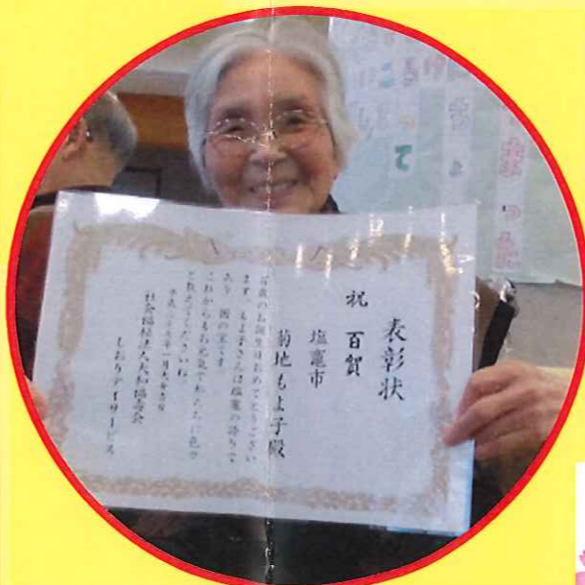 表彰状
祝 百賀
塩竈市
菊地もよ子殿
百歳のお誕生日おめでとうござい
ます。もよ子さんは塩竈の誇りで
あり、国の宝です。
これからもお元気で私たちに色々
と教えてくださいね。
社会福祉法人大和福寿会
しおりデイサービス